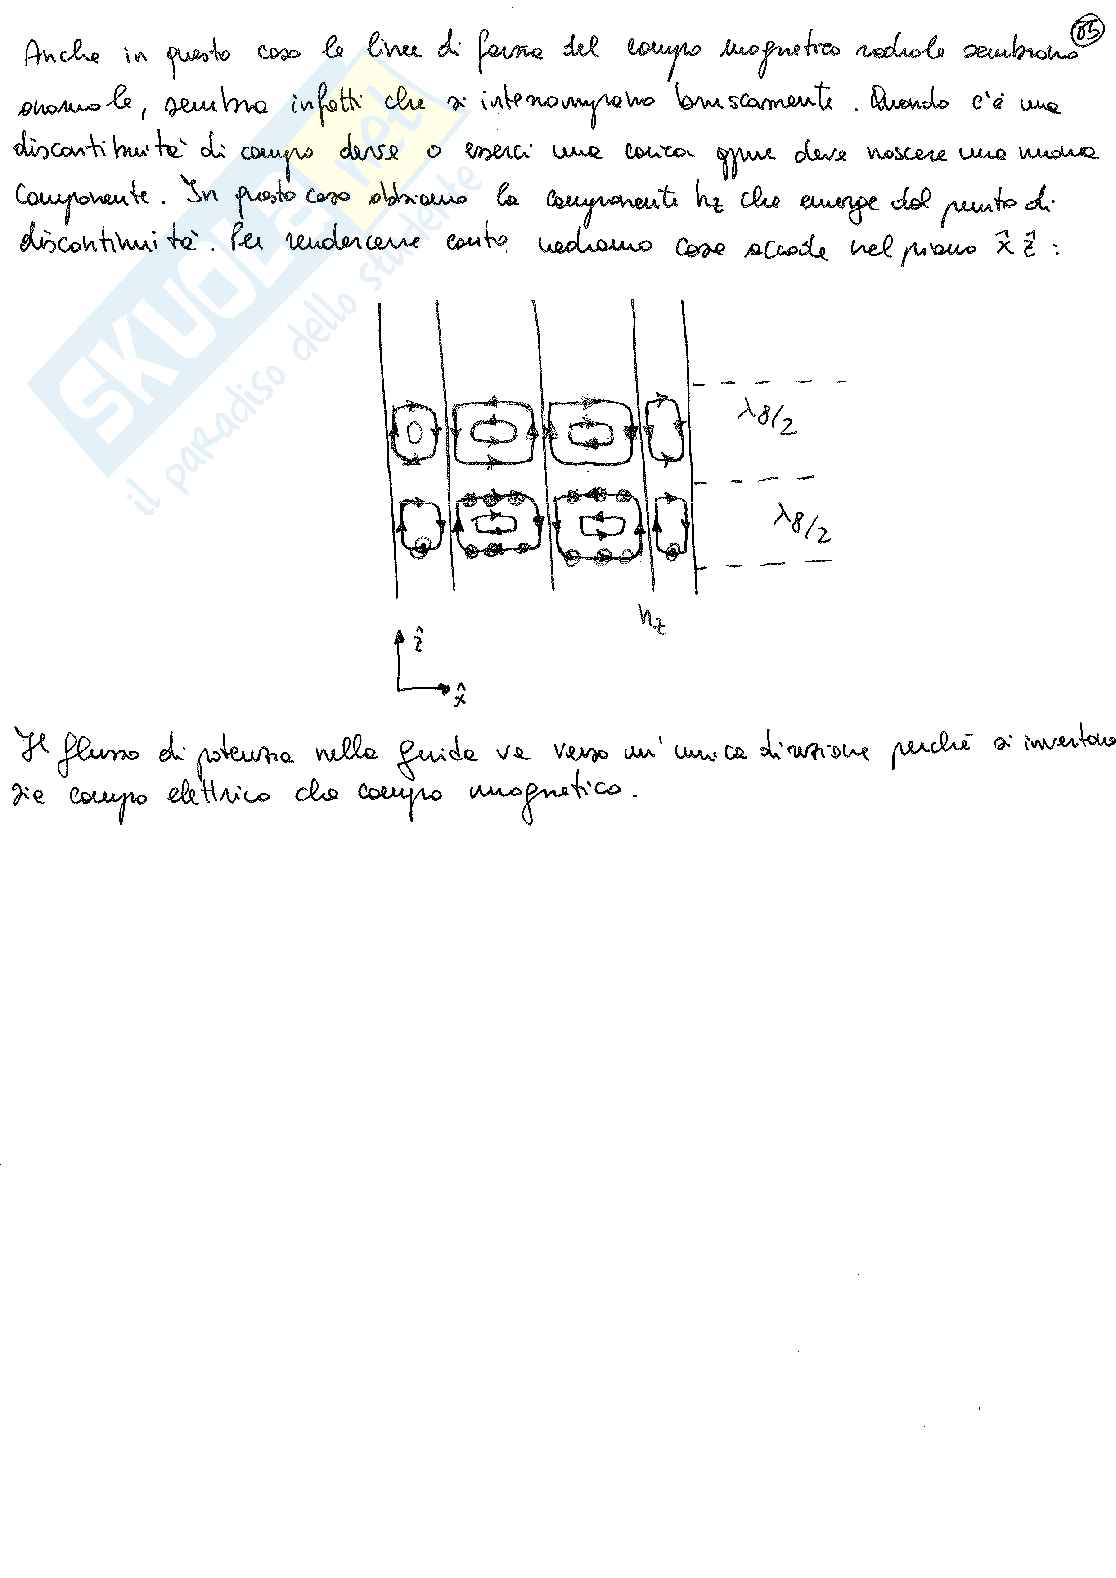 85
Anche in questo caso le linee di forza del campo magnetico radiale sembrano
anomale, sembra infatti che si interrompano bruscamente. Quando c'è una
discontinuità di campo deve o esserci una carica oppure deve nascere una nuova
componente. In questo caso abbiamo la componente hz che emerge dal punto di
discontinuità. Per rendercene conto vediamo cosa accade nel piano x̂ ẑ :
SKUOLA.net
il paradiso dello studente
λg/2
λg/2
hz
ẑ
x̂
Il flusso di potenza nella guida va verso un'unica direzione perché si invertono
sia campo elettrico che campo magnetico.